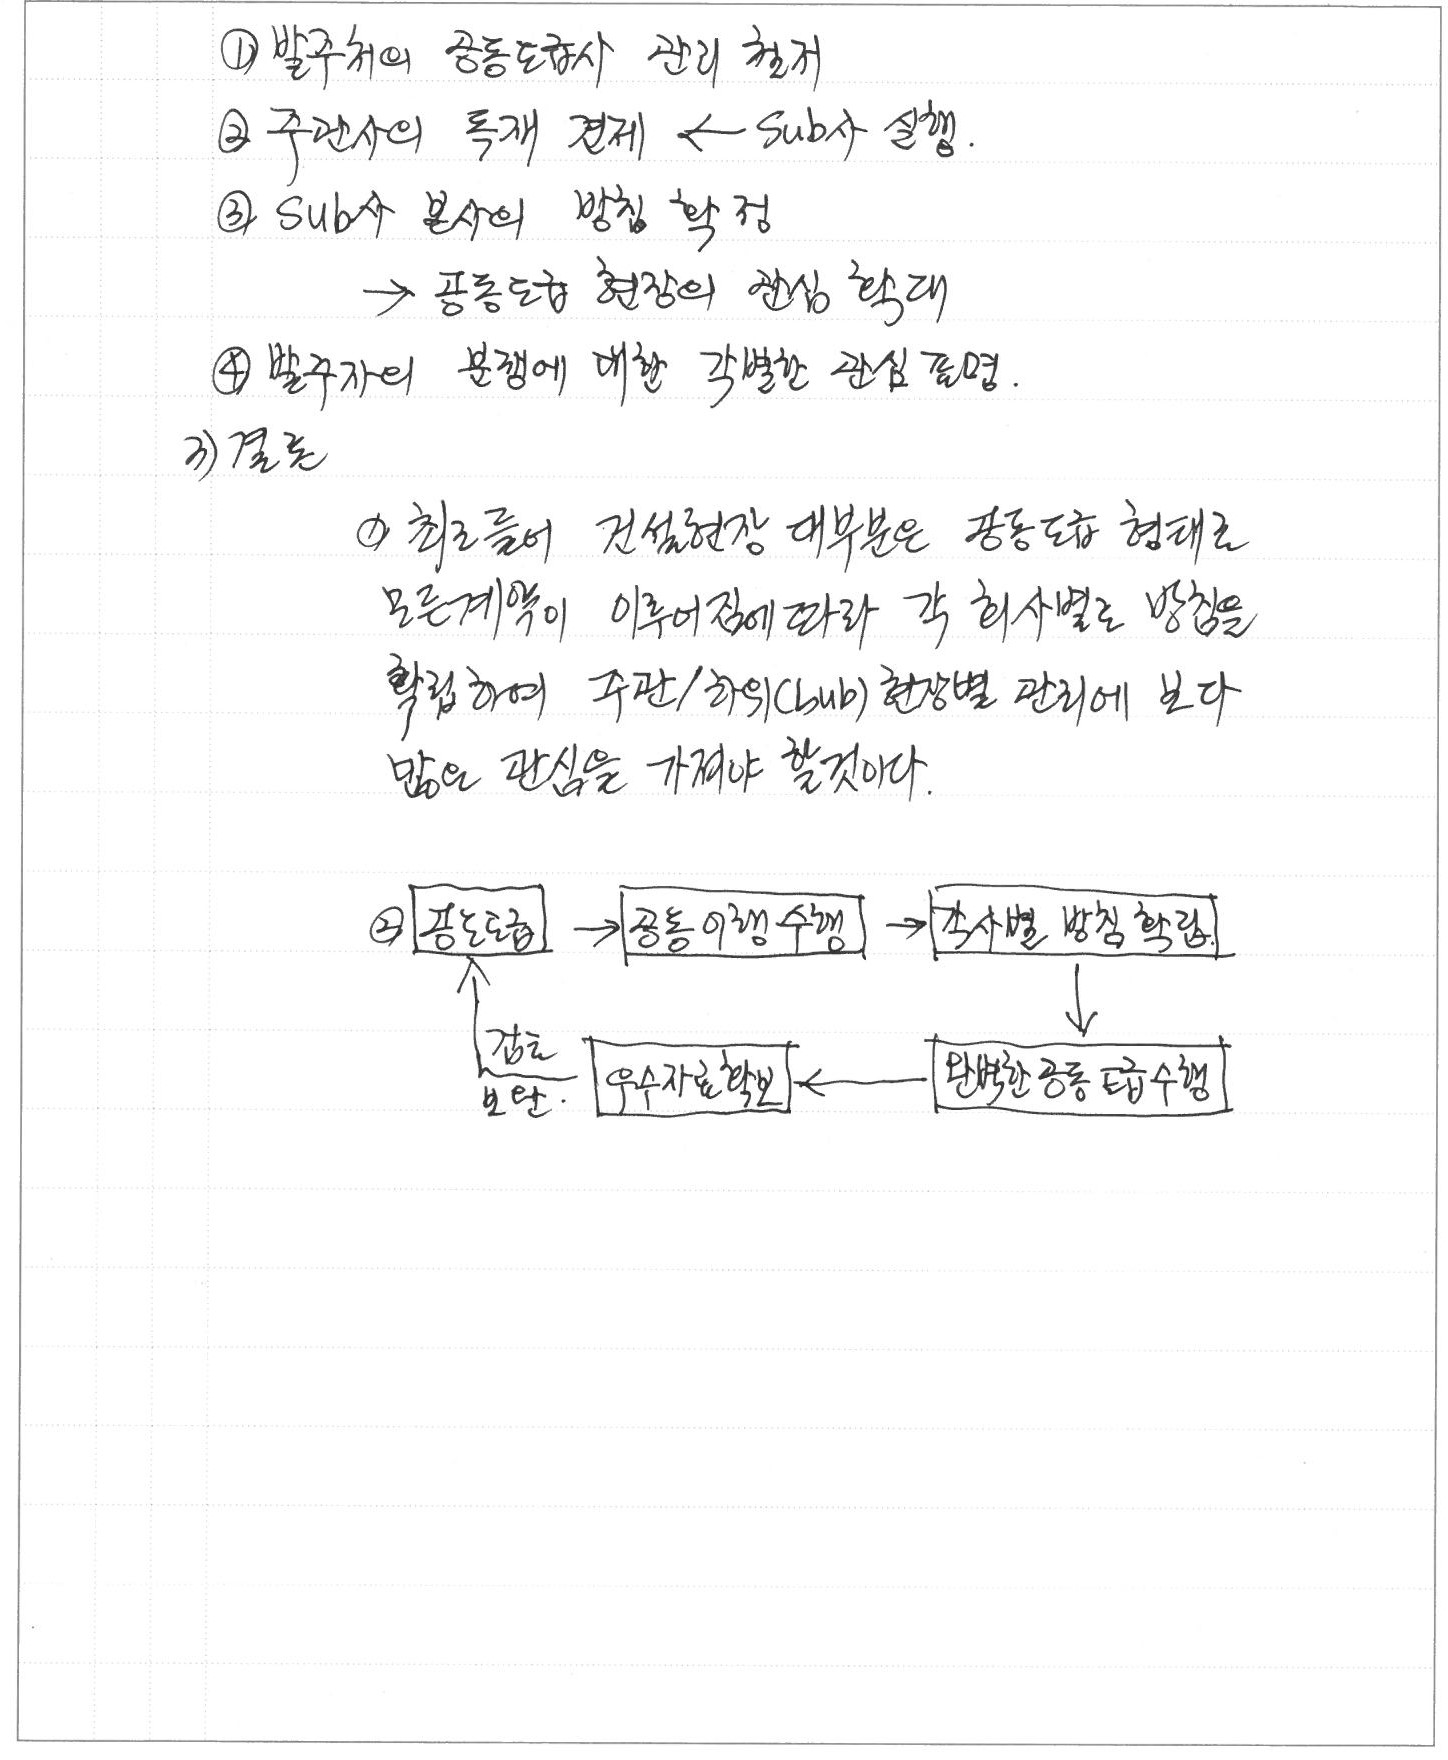 ① 발주처의 공동도급사 관리 철저
② 주관사의 독재 견제 ← Sub사 실행.
③ Sub사 본사의 방침 확정
→ 공동도급 현장의 관심 확대
④ 발주자의 분쟁에 대한 각별한 관심 표명.
7) 결론
① 최근들어 건설현장 대부분은 공동도급 형태로
모든계약이 이루어짐에따라 각 회사별로 방침을
확립하여 주관/하위(sub) 현장별 관리에 보다
많은 관심을 가져야 할것이다.
② 공동도급 → 공동이행 수행 → 각사별 방침 확립.
검토 보완. 우수자료확보 ← 완벽한 공동 도급수행